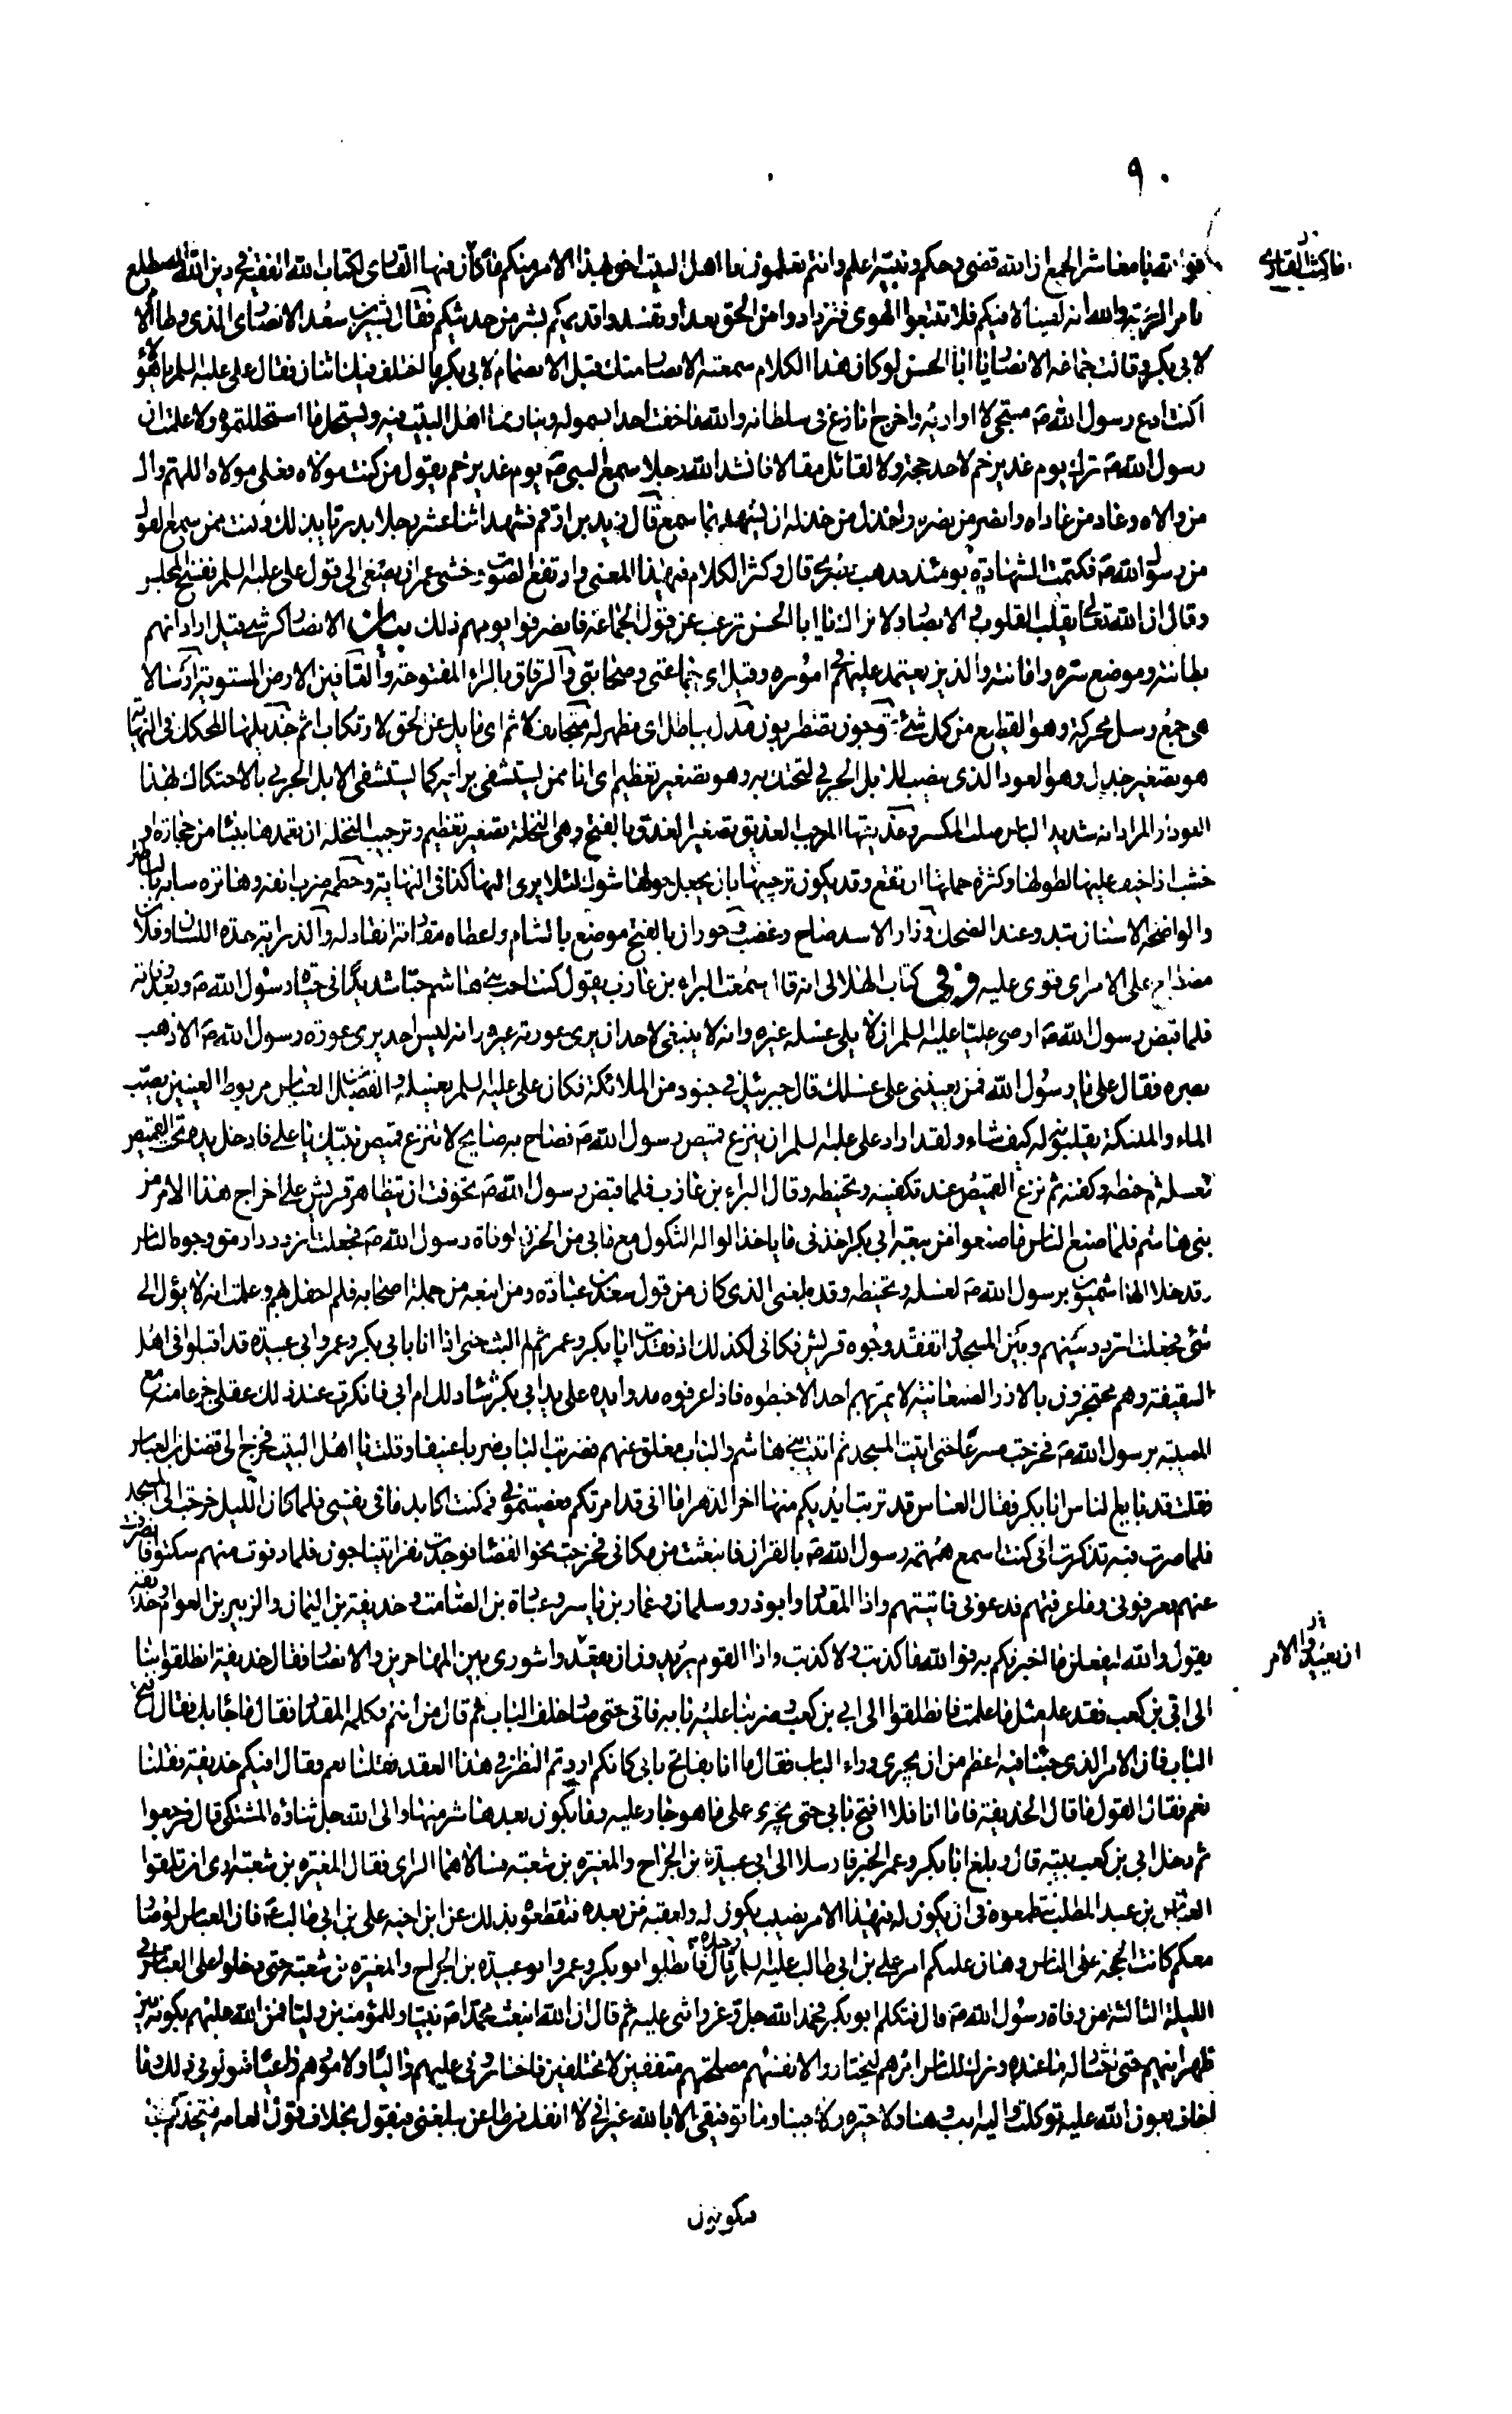 ٩٠
يا معاشر الجمع ان الله قضى وحكم ونبيه اعلم وانتم تعلمون انا اهل البيت احق بهذا الامر منكم اما كان منها القارى لكتاب الله الفقيه في دين الله المضطلع
بامر الرعية والله انه لفينا لا فيكم فلا تتبعوا الهوى فتزدادوا من الحق بعدا وتفسدوا قديمكم بشر من حديثكم فقال بشير بن سعد الانصارى الذى وطا الامر
لابى بكر وقالت جماعة الانصار يا ابا الحسن لو كان هذا الكلام سمعته الانصار منك قبل الانضمام لابى بكر ما اختلف فيك اثنان فقال على عليه السلم يا هؤلاء
اكنت ادع رسول الله ص مسجى لا اواريه واخرج انازع فى سلطانه والله ما خفت احدا يسمو له وينازعنا اهل البيت فيه ويستحل ما استحللتموه ولا علمت ان
رسول الله ص ترك يوم غدير خم لاحد حجة ولا لقائل مقالا فانشد الله رجلا سمع النبى ص يوم غدير خم يقول من كنت مولاه فعلى مولاه اللهم وال
من والاه وعاد من عاداه وانصر من نصره واخذل من خذله ان يشهد بما سمع قال زيد بن ارقم فشهد اثنا عشر رجلا بدريا بذلك وكنت ممن سمع القول
من رسول الله ص فكتمت الشهادة يومئذ فذهب بصرى قال وكثر الكلام فى هذا المعنى وارتفع الصوت وخشى عمر ان يصغى الى قول على عليه السلم ففسخ المجلس
وقال ان الله تعالى يقلب القلوب والابصار ولا تزال يا ابا الحسن ترغب عن قول الجماعة فانصرفوا يومهم ذلك بيان الانصار كرشى قيل اراد انهم
بطانته وموضع سره وامانته والذين يعتمد عليهم فى اموره وقيل اى جماعتى وصحابتى والرقاق بالراء المفتوحة والقافين الارض المستوية
هى جمع رسل محركة وهو القطيع من كل شئ
هو تصغير جذل وهو العود الذى ينصب للابل الجربى لتحتك به وهو تصغير تعظيم اى انا ممن يستشفى برأيه كما يستشفى الابل الجربى بالاحتكاك بهذا
العود اراد انه شديد الباس صلب المكسر وعذيقها المرجب العذيق تصغير العذق بالفتح وهى النخلة تصغير تعظيم وترجيب النخلة ان تعمد ببناء من حجارة او
خشب اذا خيف عليها لطولها وكثرة حملها ان تقع وقد يكون ترجيبها بان يجعل حولها شوك لئلا يرقى اليها كذا فى النهاية وخطمه ضرب انفه
والواضحة الاسنان تبدو عند الضحك وزأر الاسد صاح وغضب وحوران بالفتح موضع بالشام واعطاه مقادته انقاد له والذرابة حدة اللسان وفلان
مضطلع على الامر اى قوى عليه وفى كتاب الهلالى انه قال سمعت البراء بن عازب يقول كنت احب بنى هاشم حبا شديدا فى حيوة رسول الله ص وبعد وفاته
فلما قبض رسول الله ص اوصى عليا عليه السلم ان لا يلى غسله غيره وانه لا ينبغى لاحد ان يرى عورته غيره وانه ليس احد يرى عورة رسول الله ص الا ذهب
بصره فقال على يا رسول الله فمن يعيننى على غسلك قال جبرئيل فى جنود من الملائكة فكان على عليه السلم يغسله والفضل بن العباس مربوط العينين يصب
الماء والملئكة يقلبونه له كيف شاء ولقد اراد على عليه السلم ان ينزع قميص رسول الله ص فصاح به صايح لا تنزع قميص نبيك يا على فادخل يده تحت القميص
فغسله ثم حنطه وكفنه ثم نزع القميص عند تكفينه وتحنيطه وقال البراء بن عازب فلما قبض رسول الله ص تخوفت ان يتظاهر قريش على اخراج هذا الامر من
بنى هاشم فلما صنع الناس ما صنعوا من بيعة ابى بكر اخذنى ما ياخذ الواله الثكول مع ما بى من الحزن لوفاة رسول الله ص فجعلت اتردد وارمق وجوه الناس
وقد خلا الهاشميون برسول الله ص لغسله وتحنيطه وقد بلغنى الذى كان من قول سعد بن عبادة ومن اتبعه من جملة اصحابه فلم احفل بهم وعلمت انه لا يؤل الى
شئ فجعلت اتردد بينهم وبين المسجد اتفقد وجوه قريش فكانى لكذلك اذ فقدت ابا بكر وعمر ثم لم البث حتى اذا انا بابى بكر وعمر وابى عبيدة قد اقبلوا فى اهل
السقيفة وهم محتجزون بالازر الصنعانية لا يمر بهم احد الا خبطوه فاذا عرفوه مدوا يده على يد ابى بكر شاء ذلك ام ابى فانكرت عند ذلك عقلى جزعا منه مع
المصيبة برسول الله ص فخرجت مسرعا حتى اتيت المسجد ثم اتيت بنى هاشم والباب مغلق عنهم فضربت الباب ضربا عنيفا وقلت يا اهل البيت فخرج الى الفضل بن العباس
فقلت قد بايع الناس ابا بكر فقال العباس قد تربت ايديكم منها اخر الدهر اما انى قد امرتكم فعصيتمونى فمكثت اكابد ما فى نفسى فلما كان الليل خرجت الى المسجد
فلما صرت فيه تذكرت انى كنت اسمع همهمة رسول الله ص بالقران فانبعثت من مكانى فخرجت نحو الفضاء فوجدت نفرا يتناجون فلما دنوت منهم سكتوا فانصرفت
عنهم فعرفونى وما عرفتهم فدعونى فاتيتهم واذا المقداد وابو ذر وسلمان وعمار بن ياسر وعبادة بن الصامت وحذيفة بن اليمان والزبير بن العوام وحذيفة
يقول والله ليفعلن ما اخبرتكم به فوالله ما كذبت ولا كذبت واذا القوم يريدون ان يعيدوا شورى بين المهاجرين والانصار فقال حذيفة انطلقوا بنا
الى ابى بن كعب فقد علم مثل ما علمت فانطلقوا الى ابى بن كعب وضربنا عليه بابه فاتى حتى صار خلف الباب ثم قال من انتم فكلمه المقداد فقال ما جاء بك فقال افتح
الباب فان الامر الذى جئنا فيه اعظم من ان يجرى وراء الباب فقال ما انا بفاتح بابى كانكم اردتم النظر فى هذا العقد فقلنا نعم فقال افيكم حذيفة فقلنا
نعم فقال القول ما قال حذيفة فاما انا فلا افتح بابى حتى يجرى على ما هو جار عليه وما يكون بعدها شر منها والى الله جل ثناؤه المشتكى قال فرجعوا
ثم دخل ابى بن كعب بيته قال وبلغ ابا بكر وعمر الخبر فارسلا الى ابى عبيدة بن الجراح والمغيرة بن شعبة فسالاهما الراى فقال المغيرة بن شعبة ارى ان تلقوا
العباس بن عبد المطلب فتطمعوه فى ان يكون له فى هذا الامر نصيب يكون له ولعقبه من بعده فتقطعوه بذلك عن ابن اخيه على بن ابى طالب ع فان العباس لو صار
معكم كانت الحجة على الناس وهان عليكم امر على بن ابى طالب عليه السلم وحده قال فانطلقوا ابو بكر وعمر وابو عبيدة بن الجراح والمغيرة بن شعبة حتى دخلوا على العباس فى
الليلة الثالثة من وفاة رسول الله ص قال فتكلم ابو بكر فحمد الله جل وعز واثنى عليه ثم قال ان الله ابتعث محمدا ص نبيا وللمؤمنين وليا فمن الله عليهم بكونه بين
ظهرانيهم حتى اختار له ما عنده وترك للناس امرهم ليختاروا لانفسهم مصلحتهم متفقين لا مختلفين فاختارونى عليهم واليا ولامورهم راعيا فتوليت ذلك وما
اخاف بعون الله عليه توكلت واليه انيب وهنا ولا حيرة ولا جبنا وما توفيقى الا بالله غير انى لا انفك من طاعن يبلغنى فيقول بخلاف قول العامة فيتخذكم
فتكونون